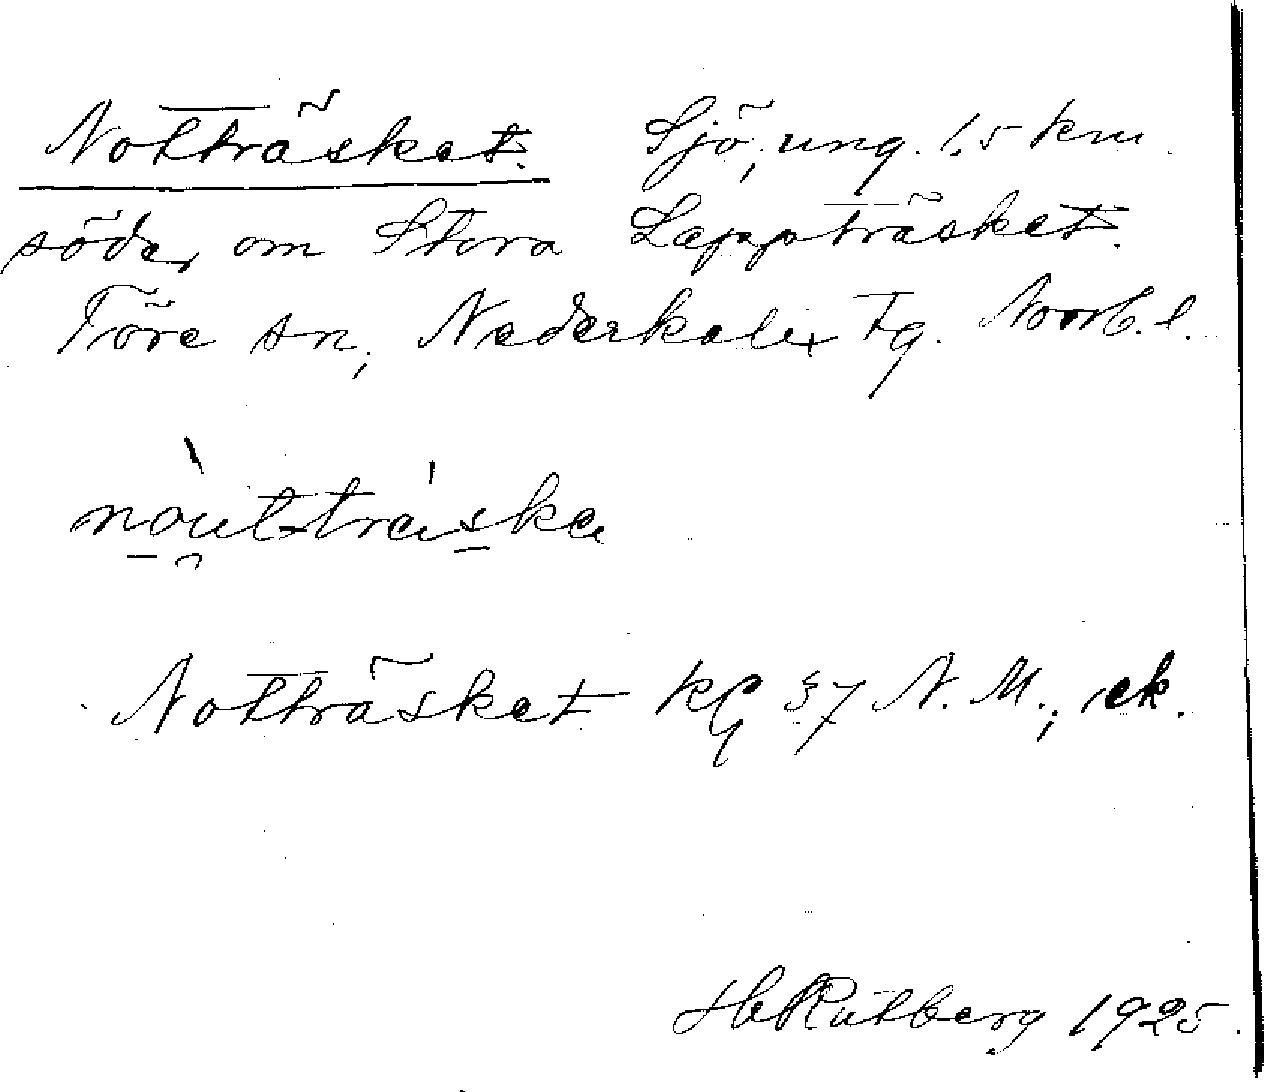 Notträsket. Sjö, ung. 1,5 km
söder om Stora Lappträsket.
Töre sn, Nederkalix tg. Norrb. l.
nòuttrá̈ska
Notträsket KG 37 N. M., ek.
H Rutberg 1925.